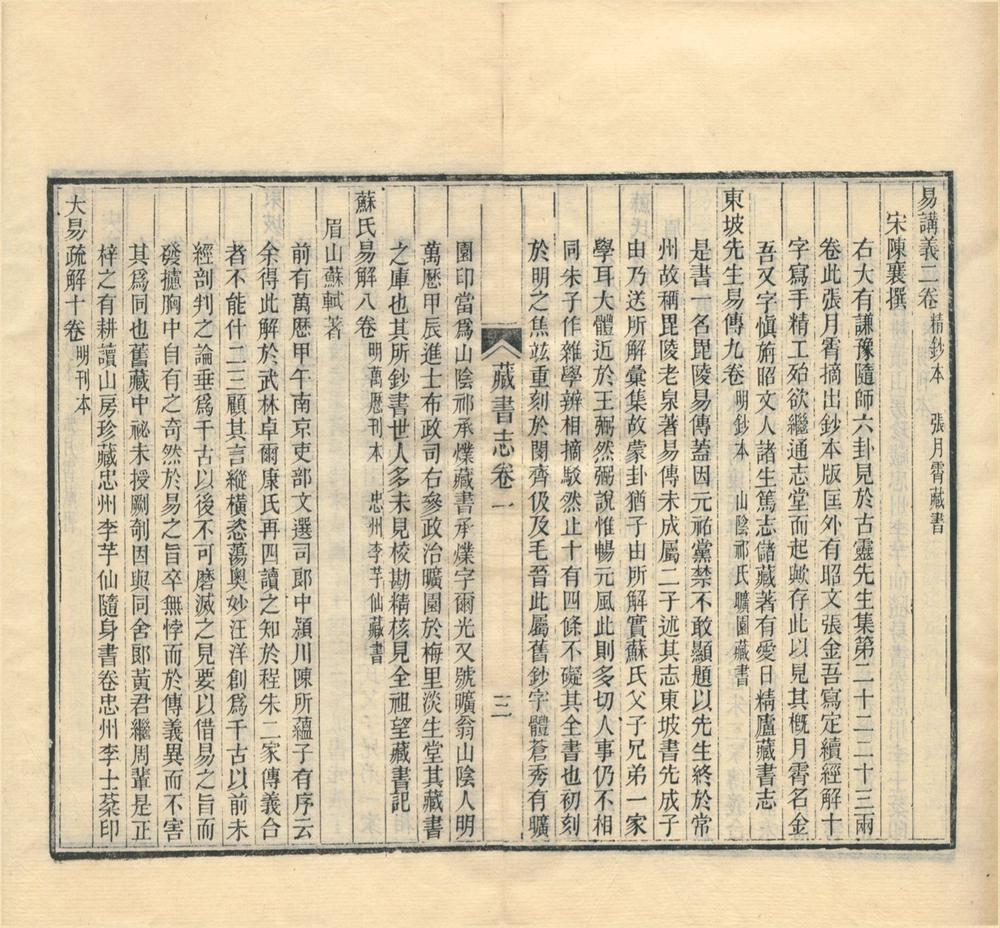 易講義二卷 精鈔本 張月霄藏書
宋陳襄撰
右大有謙豫隨師六卦見於古靈先生集第二十二二十三兩
卷此張月霄摘出鈔本版匡外有昭文張金吾寫定續經解十
字寫手精工殆欲繼通志堂而起歟存此以見其概月霄名金
吾又字愼旃昭文人諸生篤志儲藏著有愛日精廬藏書志
東坡先生易傳九卷 明鈔本 山陰祁氏曠園藏書
是書一名毘陵易傳蓋因元祐黨禁不敢顯題以先生終於常
州故稱毘陵老泉著易傳未成屬二子述其志東坡書先成子
由乃送所解彙集故蒙卦猶子由所解實蘇氏父子兄弟一家
學耳大體近於王弼然弼說惟暢元風此則多切人事仍不相
同朱子作雜學辨相摘駁然止十有四條不礙其全書也初刻
於明之焦竑重刻於閔齊伋及毛晉此屬舊鈔字體蒼秀有曠
藏書志卷一
三
園印當爲山陰祁承㸁藏書承㸁字爾光又號曠翁山陰人明
萬歷甲辰進士布政司右參政治曠園於梅里淡生堂其藏書
之庫也其所鈔書世人多未見校勘精核見全祖望藏書記
蘇氏易解八卷 明萬歷刊本 忠州李芋仙藏書
眉山蘇軾著
前有萬歷甲午南京吏部文選司郎中潁川陳所蘊子有序云
余得此解於武林卓爾康氏再四讀之知於程朱二家傳義合
者不能什二三顧其言縱橫恣蕩奧妙汪洋創爲千古以前未
經剖判之論垂爲千古以後不可磨滅之見要以借易之旨而
發攄胸中自有之奇然於易之旨卒無悖而於傳義異而不害
其爲同也舊藏中祕未授劂剞因與同舍郞黃君繼周輩是正
梓之有耕讀山房珍藏忠州李芋仙隨身書卷忠州李士棻印
大易疏解十卷 明刊本